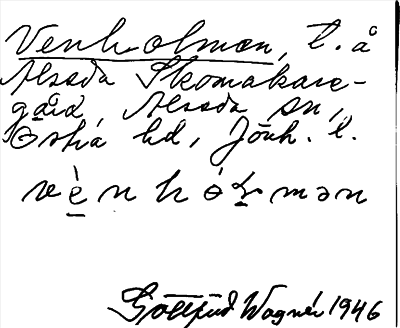 Venholmen, t. å
Alseda Skomakare-
gård, Alseda sn,
Östra hd, Jönk. l.
vènhólmən
Gottfrid Wagnér 1946